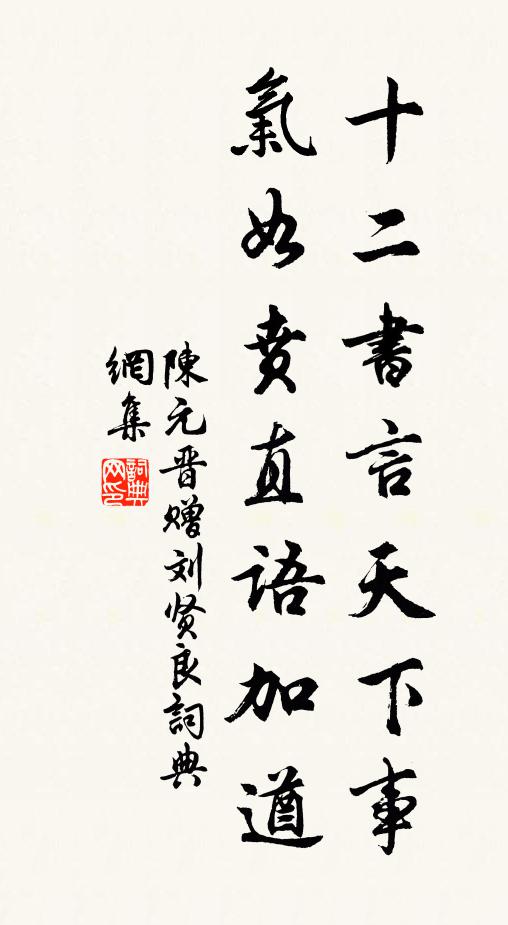 十二書言天下事
氣如賁直語加遒
陳元晋赠刘贤良詞典
網集
詞典
网印